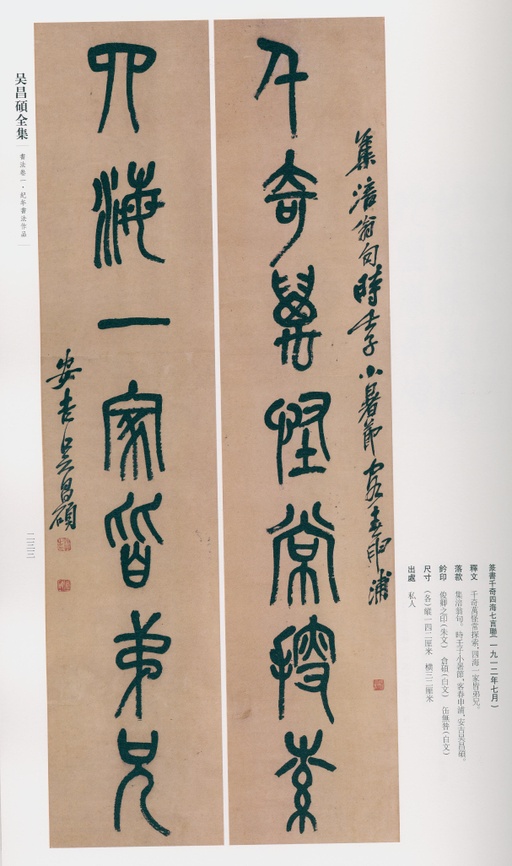 千奇萬怪常搜索
集涪翁句時壬子小暑節客春申浦
四海一家皆弟兄
安吉吴昌碩
吴昌碩全集
書法卷一·紀年書法作品
二三三
篆書千奇四海七言聯(一九一二年七月)
釋文 千奇萬怪常探索,四海一家皆弟兄。
落款 集涪翁句。時壬子小暑節,客春申浦,安吉吴昌碩。
鈐印 俊卿之印(朱文) 倉碩(白文) 缶無咎(白文)
尺寸 (各)縱一四二厘米 橫三二厘米
出處 私人